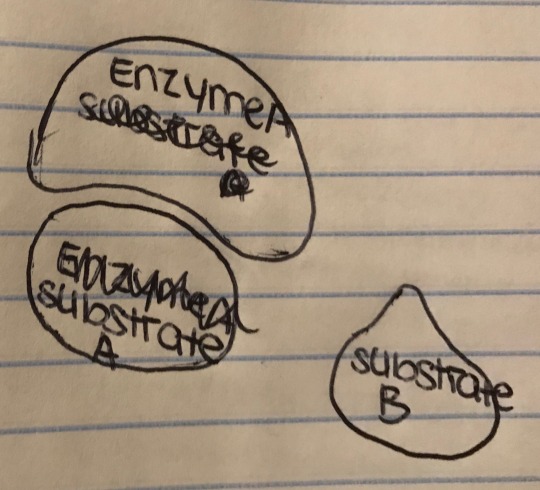 Enzyme A
substrate
Enzyme A
substrate
A
substrate
B